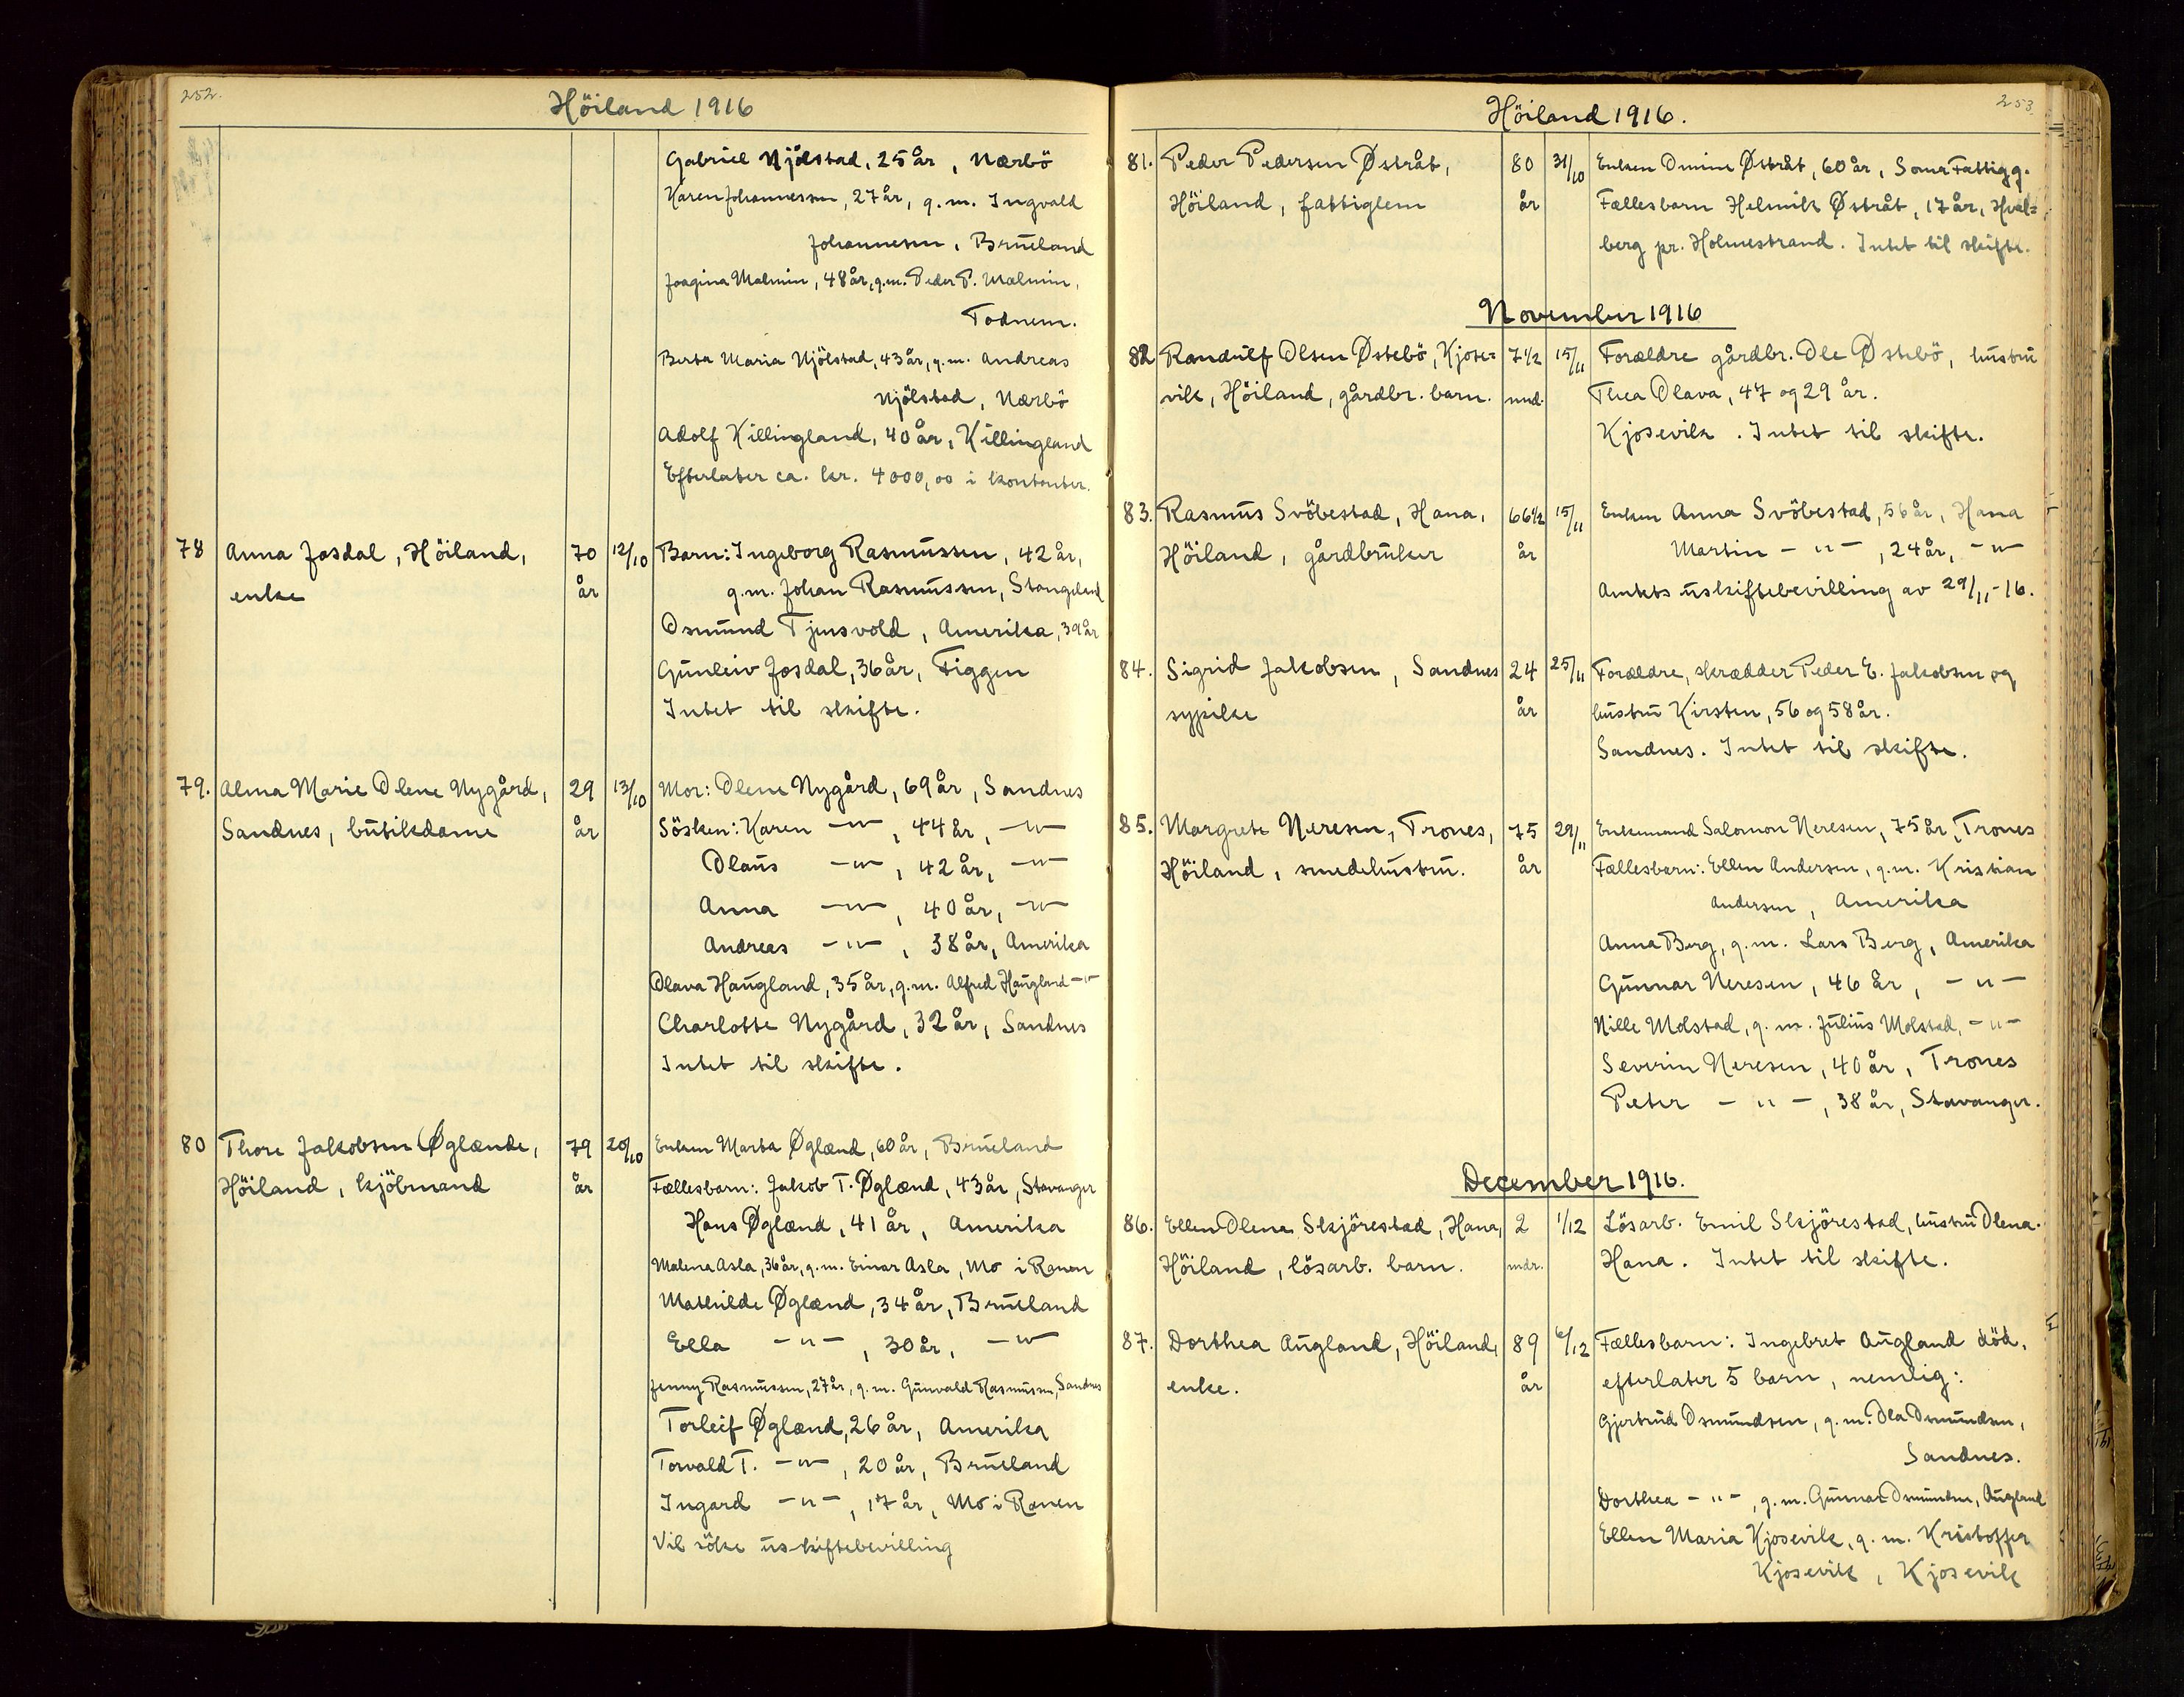 252.
Höiland 1916
Gabriel Njölstad, 25 år, Nærbö
Karen Johannessen, 27 år, g.m. Ingvald
Johannesen, Brueland
Joagina Malmin, 48 år, g.m. Peder P. Malmin,
Todnem.
Berta Maria Njölstad, 43 år, g.m. Andreas
Njölstad, Nærbö
Adolf Killingland, 40 år, Killingland
Efterlater ca. kr. 4000,00 i kontanter.
78 Anna Josdal, Höiland, 70 12/10 Barn: Ingeborg Rasmussen, 42 år,
enke år g.m. Johan Rasmussen, Stangeland
Osmund Tjensvold, Amerika, 39 år
Gunleiv Josdal, 36 år, Figgen
Intet til skifte.
79. Alma Marie Olene Nygård, 29 13/10 Mor: Olene Nygård, 69 år, Sandnes
Sandnes, butikdame år Sösken: Karen -"-, 44 år, -"-
Olaus -"-, 42 år, -"-
Anna -"-, 40 år, -"-
Andreas -"-, 38 år, Amerika
Olava Haugland, 35 år, g.m. Alfred Haugland -"-
Charlotte Nygård, 32 år, Sandnes
Intet til skifte.
80 Thore Jakobsen Øglænde, 79 20/10 Enken Marta Øglænd, 60 år, Brueland
Höiland, kjöbmand år Fællesbarn: Jakob T. Øglænd, 43 år, Stavanger
Hans Øglænd, 41 år, Amerika
Malena Asla, 36 år, g.m. Einar Asla, Mo i Ranen
Mathilde Øglænd, 34 år, Brueland
Ella -"-, 30 år, -"-
Jenny Rasmussen, 27 år, g.m. Gunvald Rasmussen, Sandnes
Torleif Øglænd, 26 år, Amerika
Torvald T. -"-, 20 år, Brueland
Ingard -"-, 17 år, Mo i Ranen
Vil söke uskiftebevilling
253
Höiland 1916.
81. Peder Pedersen Østråt, 80 31/10 Enken Omine Østråt, 60 år, Soma Fattigg.
Höiland, fattiglem år Fællesbarn Helmik Østråt, 17 år, Hvål=
berg pr. Holmestrand. Intet til skifte.
November 1916
82 Randulf Olsen Østebö, Kjose= 7 1/2 15/11 Forældre gårdbr. Ole Østebö, hustru
vik, Höiland, gårdbr. barn. mnd. Thea Olava, 47 og 29 år.
Kjosevik. Intet til skifte.
83. Rasmus Svöbestad, Hana, 66 1/2 15/11 Enken Anna Svöbestad, 56 år, Hana
Höiland, gårdbruker år Martin -"-, 24 år, -"-
Amtets uskiftebevilling av 29/11-16.
84. Sigrid Jakobsen, Sandnes 24 25/11 Forældre, skrædder Peder E. Jakobsen og
sypike år hustru Kirsten, 56 og 58 år.
Sandnes. Intet til skifte.
85. Margrete Neresen, Trones, 75 29/11 Enkemand Salomon Neresen, 75 år, Trones
Höiland, smedehustru. år Fællesbarn: Ellen Andersen, g.m. Kristian
Andersen, Amerika
Anna Berg, g.m. Lars Berg, Amerika
Gunnar Neresen, 46 år, -"-
Nille Molstad, g.m. Julius Molstad, -"-
Severin Neresen, 40 år, Trones
Peter -"-, 38 år, Stavanger.
December 1916.
86. Ellen Olena Skjörestad, Hana, 2 1/12 Lösarb. Emil Skjörestad, hustru Olena.
Höiland, lösarb. barn. mdr. Hana. Intet til skifte.
87. Dorthea Augland, Höiland, 89 6/12 Fællesbarn: Ingebret Augland död,
enke. år efterlater 5 barn, nemlig:
Gjertrud Osmundsen, g.m. Ola Osmundsen,
Sandnes.
Dorthea -"-, g.m. Gunnar Osmundsen, Augland
Ellen Maria Kjosevik, g.m. Kristoffer
Kjosevik, Kjosevik